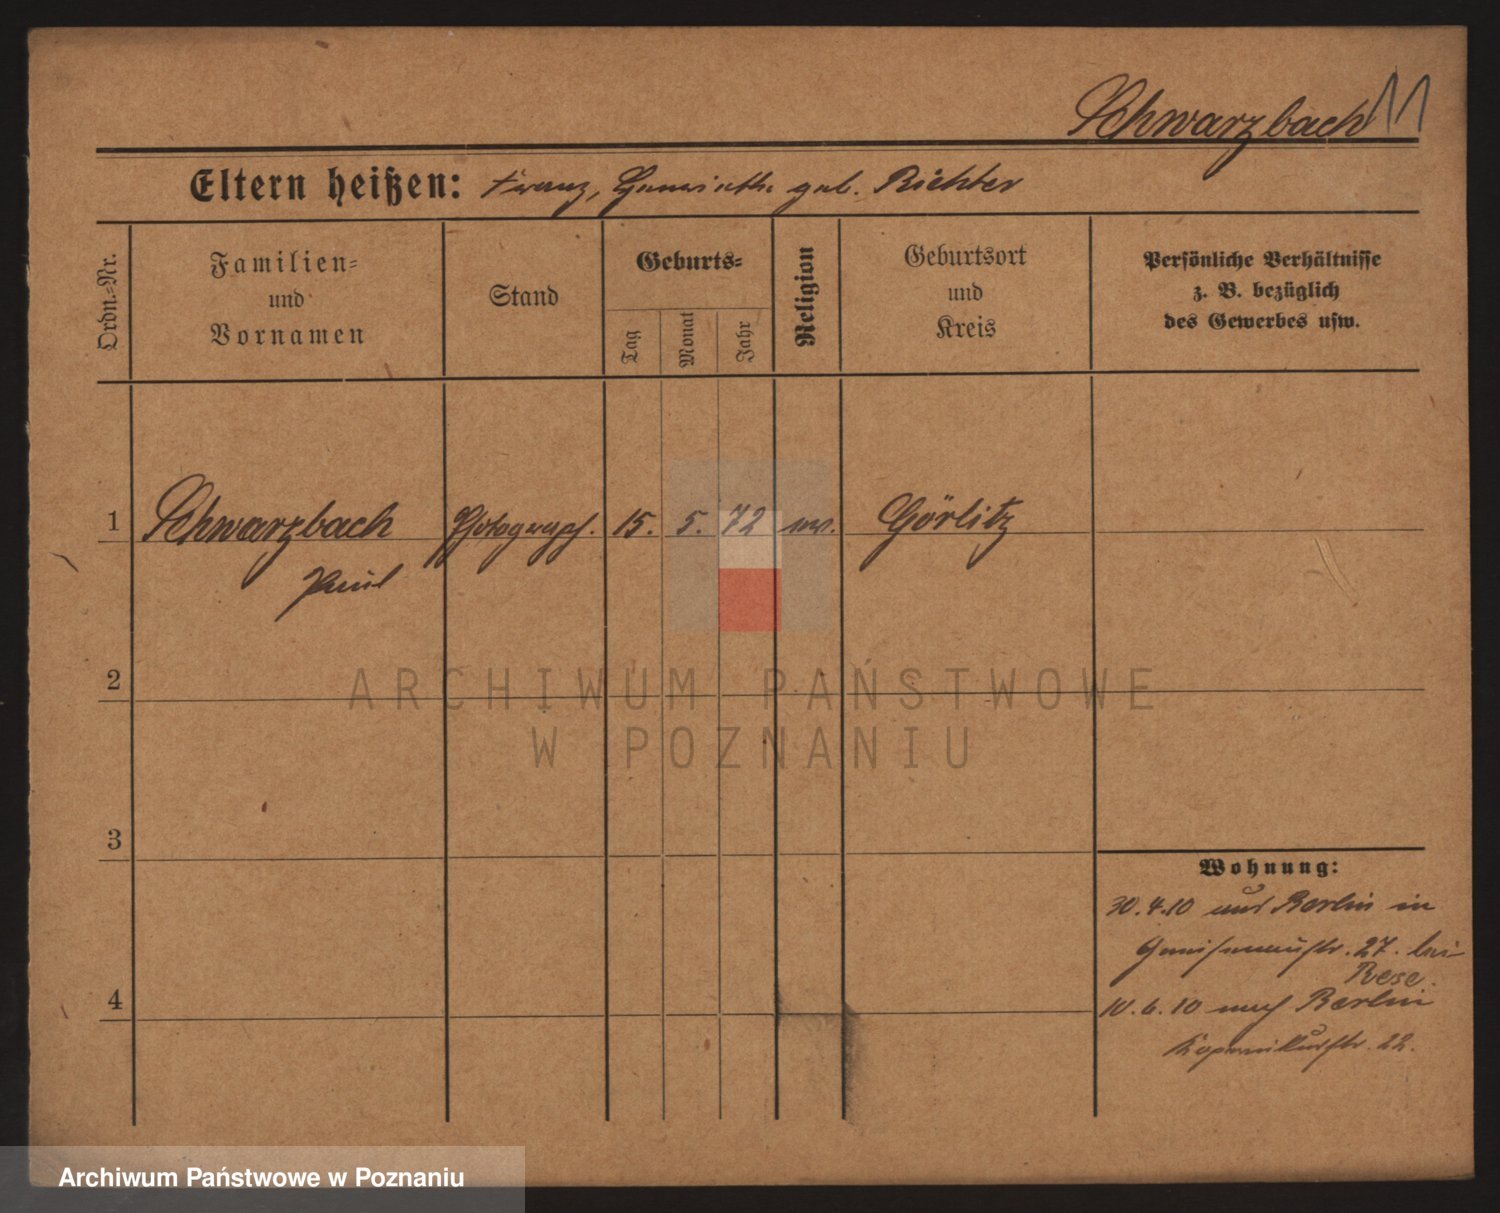 Schwarzbach 11
Eltern heißen: Franz, Henriette geb. Richter
Ordn.=Nr.
Familien=
und
Vornamen
Stand
Geburts=
Tag
Monat
Jahr
Religion
Geburtsort
und
Kreis
Persönliche Verhältnisse
z. B. bezüglich
des Gewerbes usw.
1 Schwarzbach Photograph. 15. 5. 72 ev. Görlitz
Paul
2
ARCHIWUM PAŃSTWOWE
W POZNANIU
3
Wohnung:
30.4.10 aus Berlin in
Gneisenaustr. 27. bei
Rese.
4
10.6.10 nach Berlin
Kopernikusstr. 22.
Archiwum Państwowe w Poznaniu